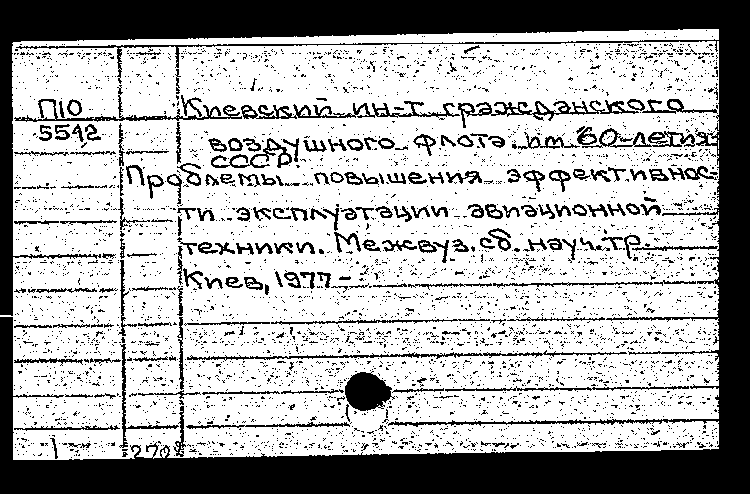 П10
5542
Киевский ин-т гражданского
воздушного флота. им 60-летия
СССР.
Проблемы повышения эффективнос-
ти эксплуатации авиационной
техники. Межвуз. сб. науч. тр.
Киев, 1977 -
270